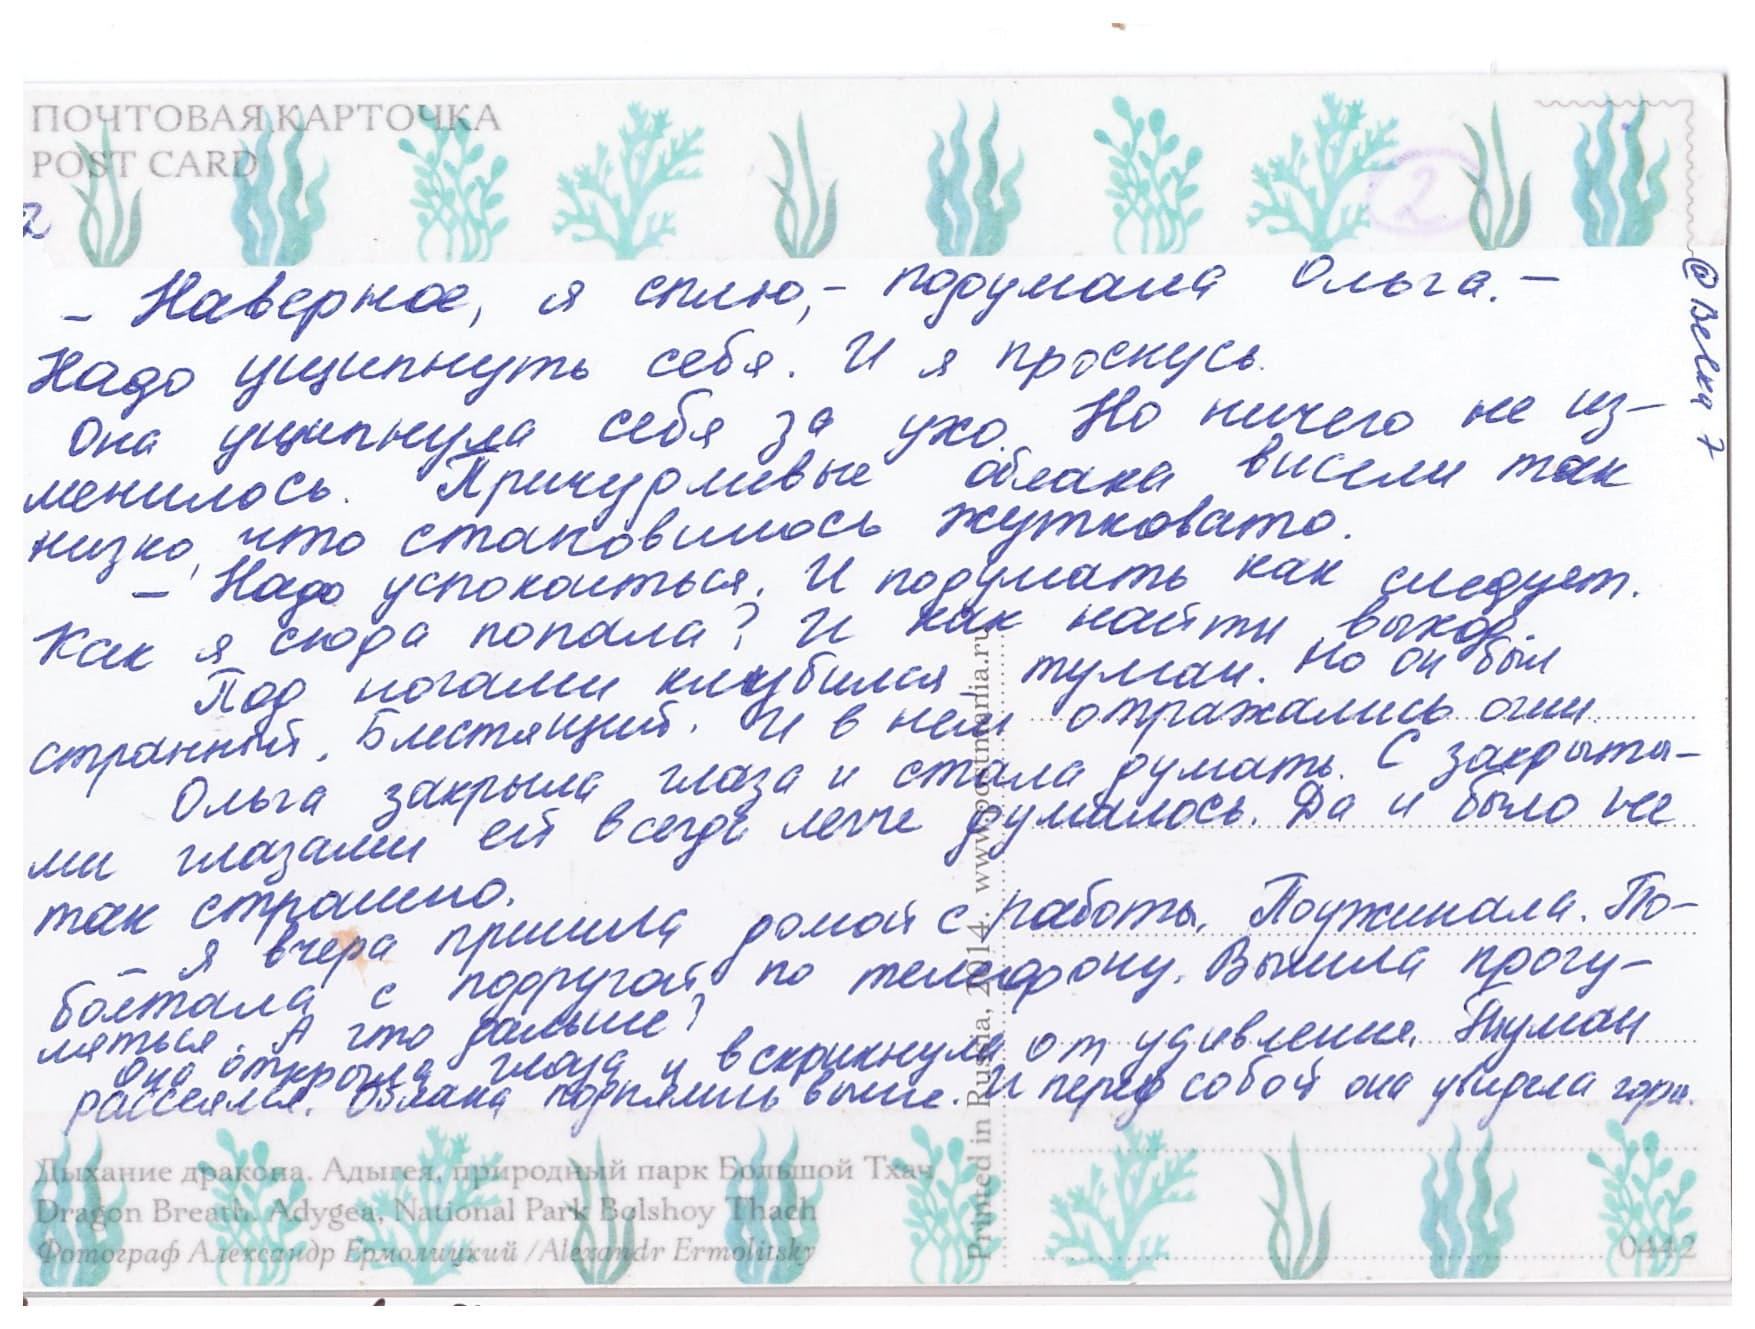 ПОЧТОВАЯ КАРТОЧКА
POST CARD
2
2
@Belka 7
– Наверное, я сплю, – подумала Ольга. –
Надо ущипнуть себя. И я проснусь.
Она ущипнула себя за ухо. Но ничего не из-
менилось. Причудливые облака висели так
низко, что становилось жутковато.
– Надо успокоиться. И подумать как следует.
Как я сюда попала? И как найти выход.
Под ногами клубился туман. Но он был
странный. Блестящий. И в нём отражались огни
Ольга закрыла глаза и стала думать. С закрыты-
ми глазами ей всегда легче думалось. Да и было не
так страшно.
– Я вчера пришла домой с работы. Поужинала. По-
болтала с подругой по телефону. Вышла прогу-
ляться. А что дальше?
Она открыла глаза и вскрикнула от удивления. Туман
рассеялся. Облака поднялись выше. И перед собой она увидела горы.
Printed in Russia, 2014. www.postmania.ru
Дыхание дракона. Адыгея, природный парк Большой Тхач
Dragon Breath. Adygea, National Park Bolshoy Thach
Фотограф Александр Ермолицкий /Alexandr Ermolitsky
0442